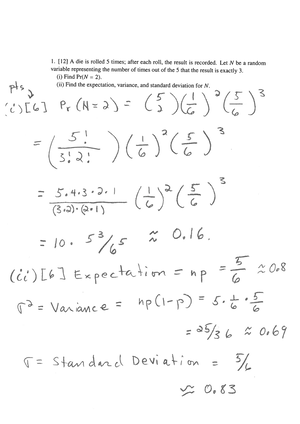 1. [12] A die is rolled 5 times; after each roll, the result is recorded. Let N be a random
variable representing the number of times out of the 5 that the result is exactly 3.
(i) Find Pr(N = 2).
(ii) Find the expectation, variance, and standard deviation for N.
pts
(i) [6] Pr (N = 2) = (5 2) (1/6)^2 (5/6)^3
= (5! / 3! 2!) (1/6)^2 (5/6)^3
= 5·4·3·2·1 / (3·2)·(2·1) (1/6)^2 (5/6)^3
= 10 · 5^3/6^5 ≈ 0.16.
(ii) [6] Expectation = np = 5/6 ≈ 0.8
σ^2 = Variance = np(1-p) = 5 · 1/6 · 5/6
= 25/36 ≈ 0.69
σ = Standard Deviation = 5/6
≈ 0.83